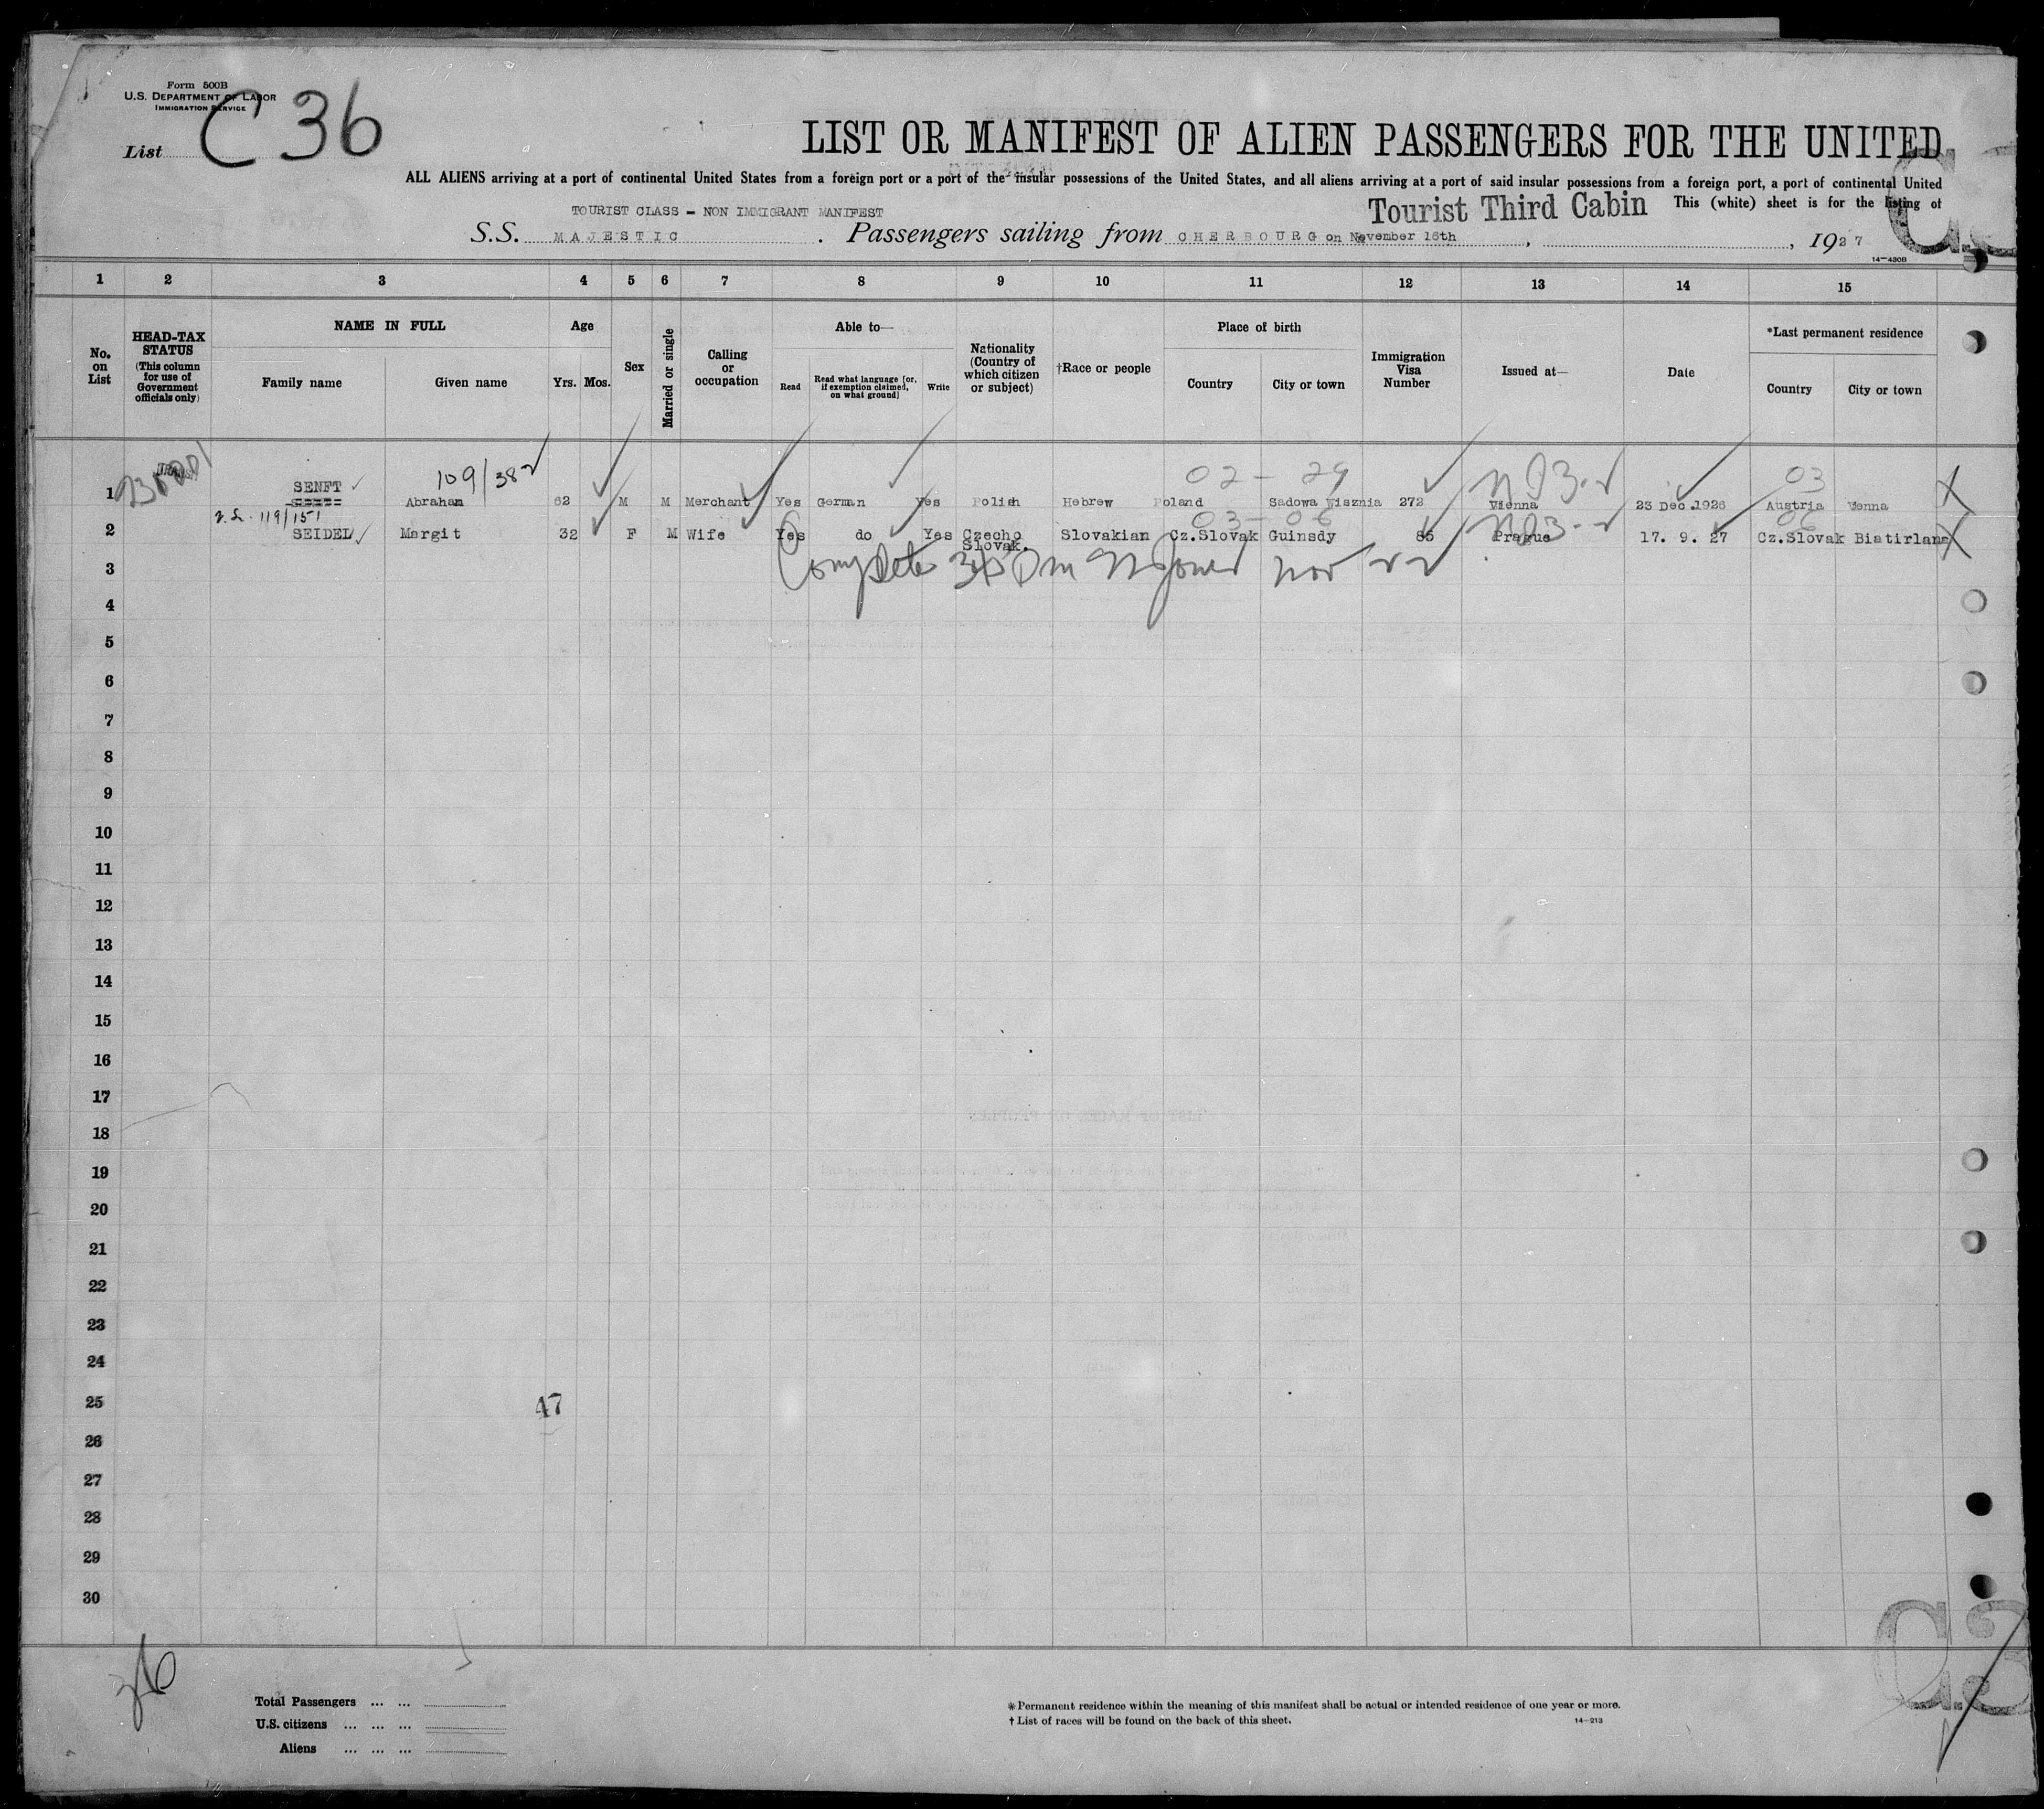 Form 500B
U.S. DEPARTMENT OF LABOR
IMMIGRATION SERVICE
List C 36
LIST OR MANIFEST OF ALIEN PASSENGERS FOR THE UNITED
ALL ALIENS arriving at a port of continental United States from a foreign port or a port of the insular possessions of the United States, and all aliens arriving at a port of said insular possessions from a foreign port, a port of continental United
TOURIST CLASS - NON IMMIGRANT MANIFEST
Tourist Third Cabin This (white) sheet is for the listing of
S.S. MAJESTIC. Passengers sailing from CHERBOURG on November 16th, , 1927
14-430B
1 2 3 4 5 6 7 8 9 10 11 12 13 14 15
No. on List
HEAD-TAX STATUS (This column for use of Government officials only)
NAME IN FULL
Family name Given name
Age
Yrs. Mos.
Sex
Married or single
Calling or occupation
Able to—
Read Read what language [or, if exemption claimed, on what ground] Write
Nationality (Country of which citizen or subject)
†Race or people
Place of birth
Country City or town
Immigration Visa Number
Issued at—
Date
*Last permanent residence
Country City or town
109/382 02-29 03
1 SENFT Abraham 62 M M Merchant Yes German Yes Polish Hebrew Poland Sadowa Wisznia 272 Vienna 23 Dec.1926 Austria Venna
119/151 03-06 06
2 SEIDEL Margit 32 F M Wife Yes do Yes Czecho Slovak. Slovakian Cz.Slovak Guinsdy 85 Prague 17. 9. 27 Cz.Slovak Biatirlana
Complete
3
4
5
6
7
8
9
10
11
12
13
14
15
16
17
18
19
20
21
22
23
24
25
47
26
27
28
29
30
Total Passengers ... ...
U.S. citizens ... ... ...
Aliens ... ... ...
* Permanent residence within the meaning of this manifest shall be actual or intended residence of one year or more.
† List of races will be found on the back of this sheet.
14-213